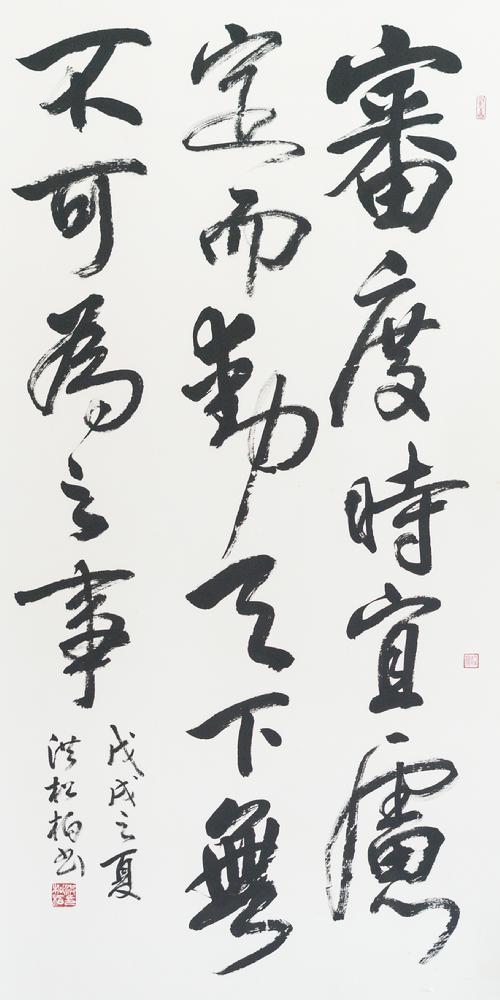 審度時宜慮
定而動天下無
不可為之事
戊戌之夏
洪松柏書